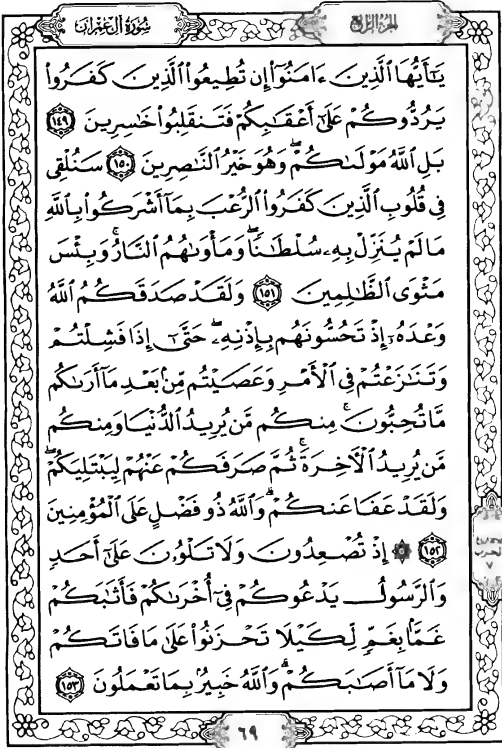 سُورَةُ آلِ عِمْرَان
الجُزْءُ الرَّابِع
يَٰٓأَيُّهَا ٱلَّذِينَ ءَامَنُوٓا۟ إِن تُطِيعُوا۟ ٱلَّذِينَ كَفَرُوا۟
يَرُدُّوكُمْ عَلَىٰٓ أَعْقَٰبِكُمْ فَتَنقَلِبُوا۟ خَٰسِرِينَ ١٤٩
بَلِ ٱللَّهُ مَوْلَىٰكُمْ ۖ وَهُوَ خَيْرُ ٱلنَّٰصِرِينَ ١٥٠ سَنُلْقِى
فِى قُلُوبِ ٱلَّذِينَ كَفَرُوا۟ ٱلرُّعْبَ بِمَآ أَشْرَكُوا۟ بِٱللَّهِ
مَا لَمْ يُنَزِّلْ بِهِۦ سُلْطَٰنًا ۖ وَمَأْوَىٰهُمُ ٱلنَّارُ ۚ وَبِئْسَ
مَثْوَى ٱلظَّٰلِمِينَ ١٥١ وَلَقَدْ صَدَقَكُمُ ٱللَّهُ
وَعْدَهُۥٓ إِذْ تَحُسُّونَهُم بِإِذْنِهِۦ ۖ حَتَّىٰٓ إِذَا فَشِلْتُمْ
وَتَنَٰزَعْتُمْ فِى ٱلْأَمْرِ وَعَصَيْتُم مِّنۢ بَعْدِ مَآ أَرَىٰكُم
مَّا تُحِبُّونَ ۚ مِنكُم مَّن يُرِيدُ ٱلدُّنْيَا وَمِنكُم
مَّن يُرِيدُ ٱلْءَاخِرَةَ ۚ ثُمَّ صَرَفَكُمْ عَنْهُمْ لِيَبْتَلِيَكُمْ ۖ
وَلَقَدْ عَفَا عَنكُمْ ۗ وَٱللَّهُ ذُو فَضْلٍ عَلَى ٱلْمُؤْمِنِينَ
١٥٢ ۞ إِذْ تُصْعِدُونَ وَلَا تَلْوُۥنَ عَلَىٰٓ أَحَدٍ
وَٱلرَّسُولُ يَدْعُوكُمْ فِىٓ أُخْرَىٰكُمْ فَأَثَٰبَكُمْ
غَمًّۢا بِغَمٍّ لِّكَيْلَا تَحْزَنُوا۟ عَلَىٰ مَا فَاتَكُمْ
وَلَا مَآ أَصَٰبَكُمْ ۗ وَٱللَّهُ خَبِيرٌۢ بِمَا تَعْمَلُونَ ١٥٣
الحزب
٧
٦٩